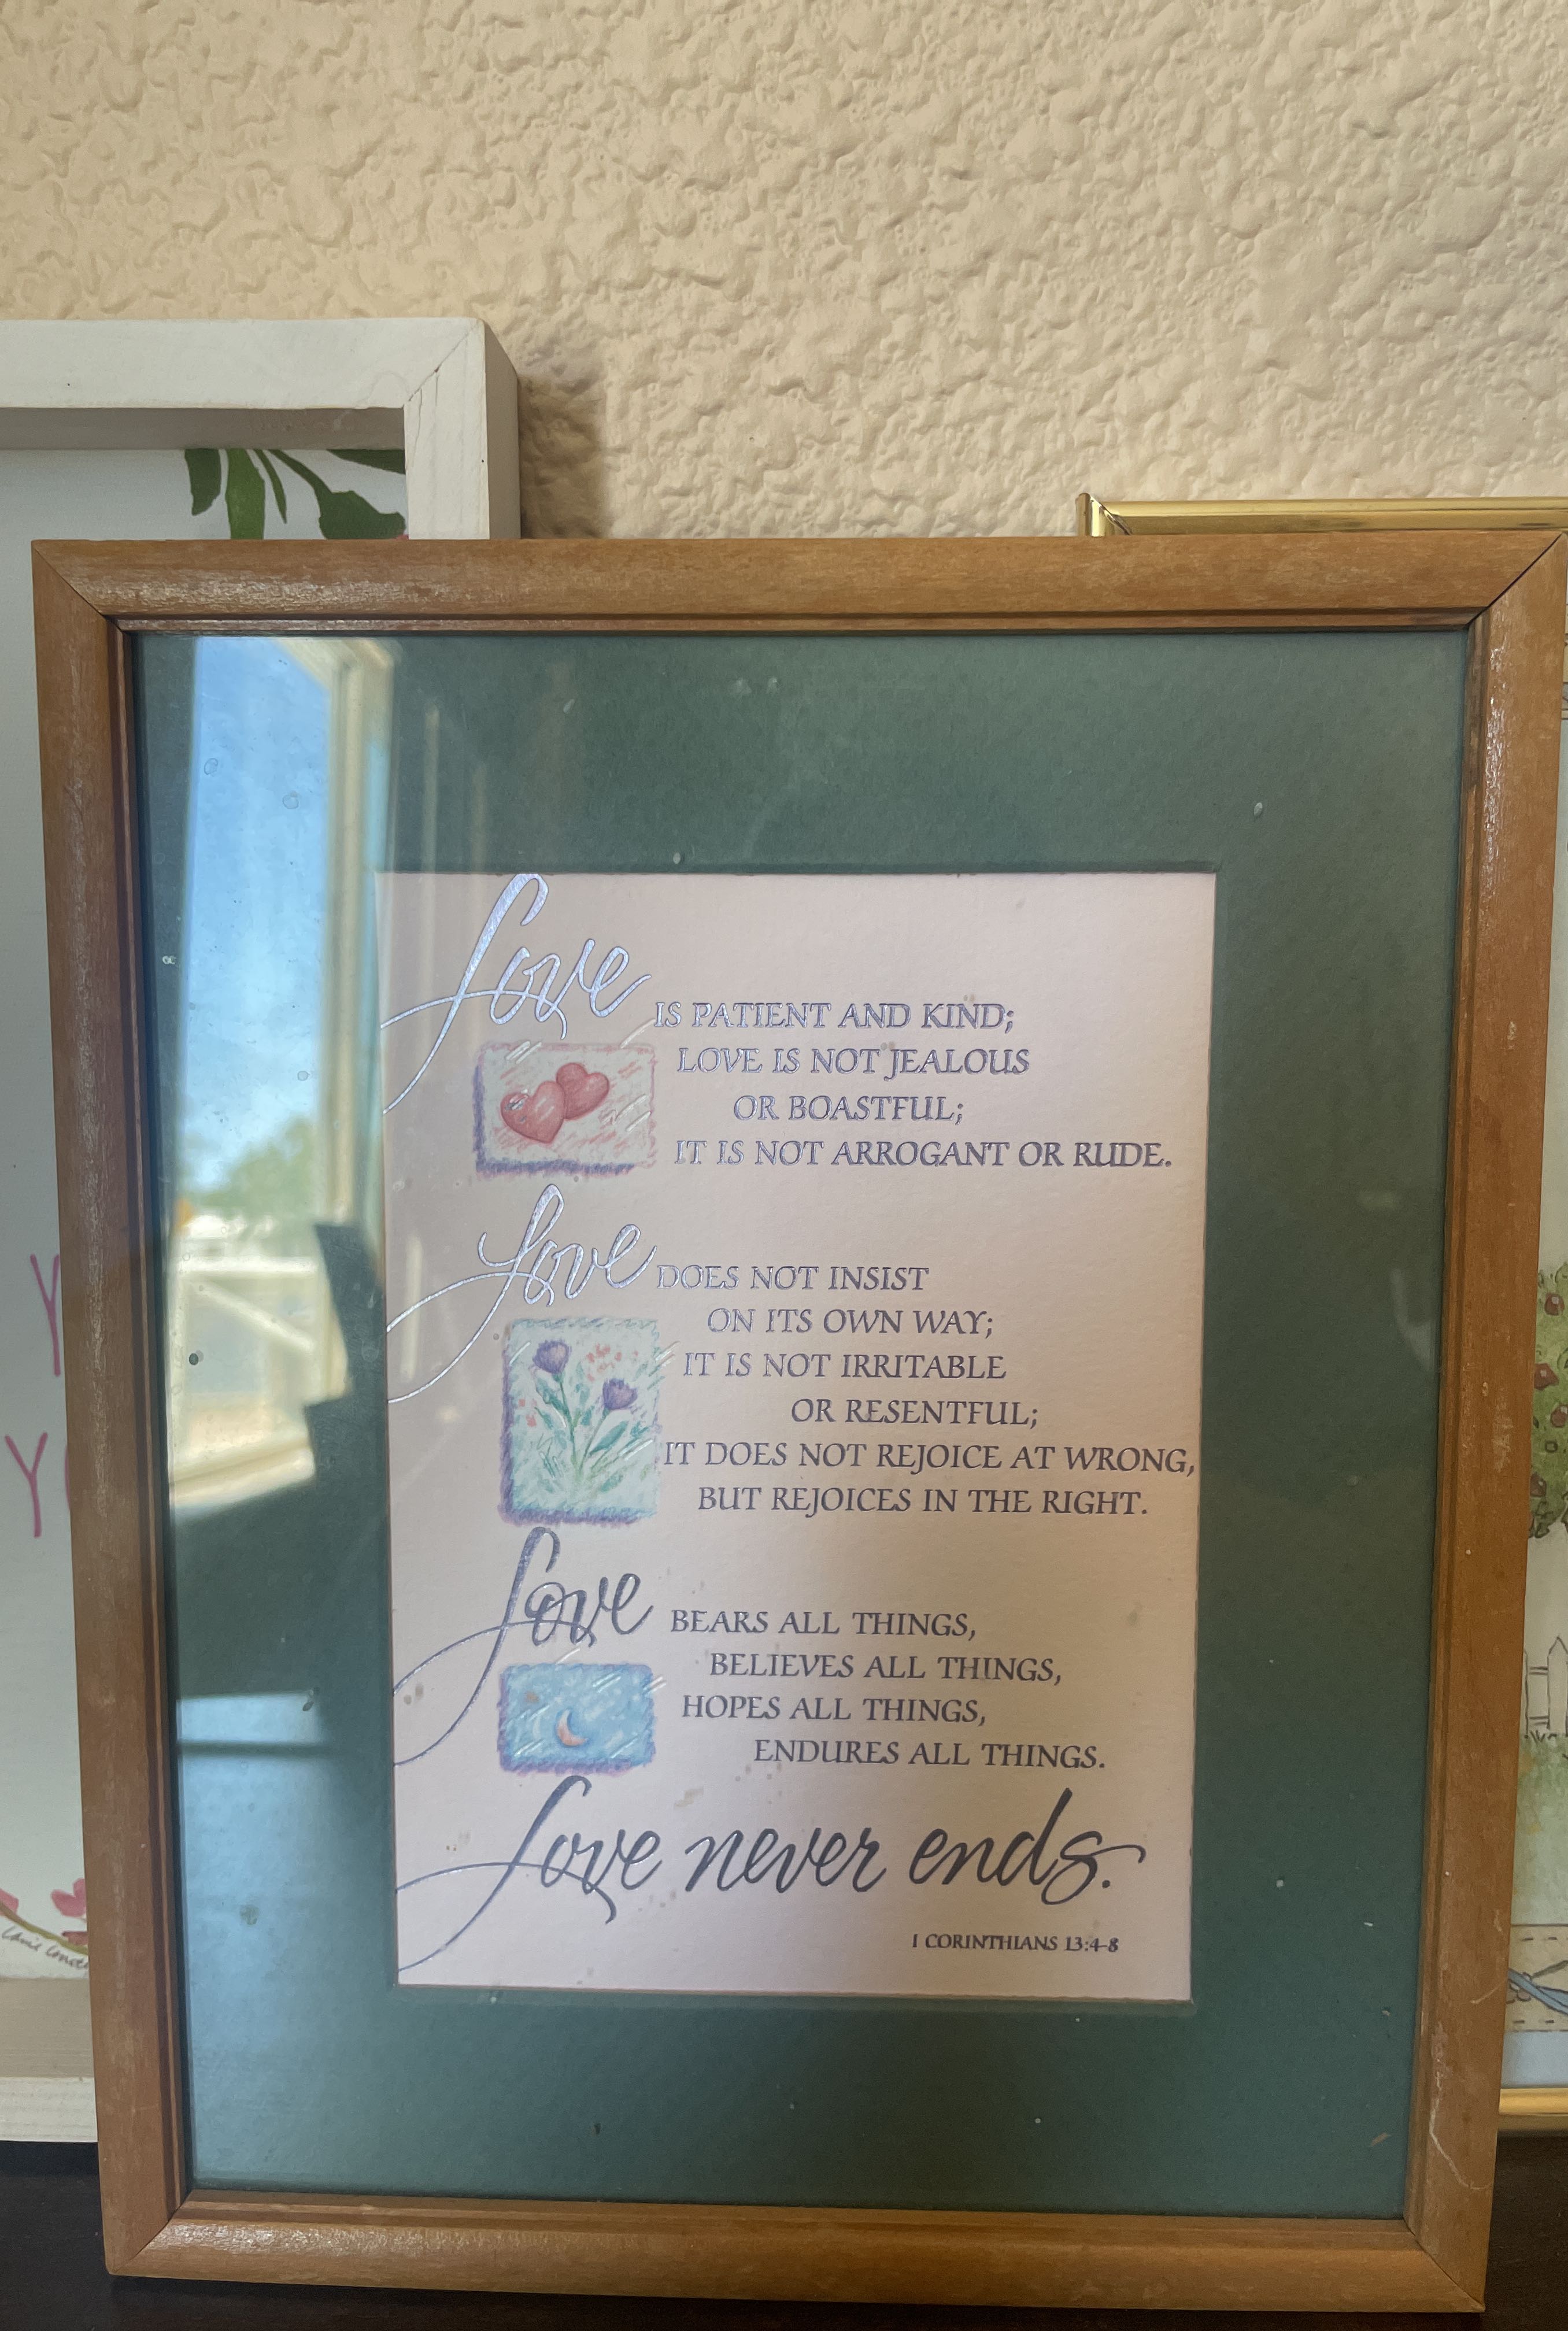 Love IS PATIENT AND KIND;
LOVE IS NOT JEALOUS
OR BOASTFUL;
IT IS NOT ARROGANT OR RUDE.
Love DOES NOT INSIST
ON ITS OWN WAY;
IT IS NOT IRRITABLE
OR RESENTFUL;
IT DOES NOT REJOICE AT WRONG,
BUT REJOICES IN THE RIGHT.
Love BEARS ALL THINGS,
BELIEVES ALL THINGS,
HOPES ALL THINGS,
ENDURES ALL THINGS.
Love never ends.
I CORINTHIANS 13:4-8